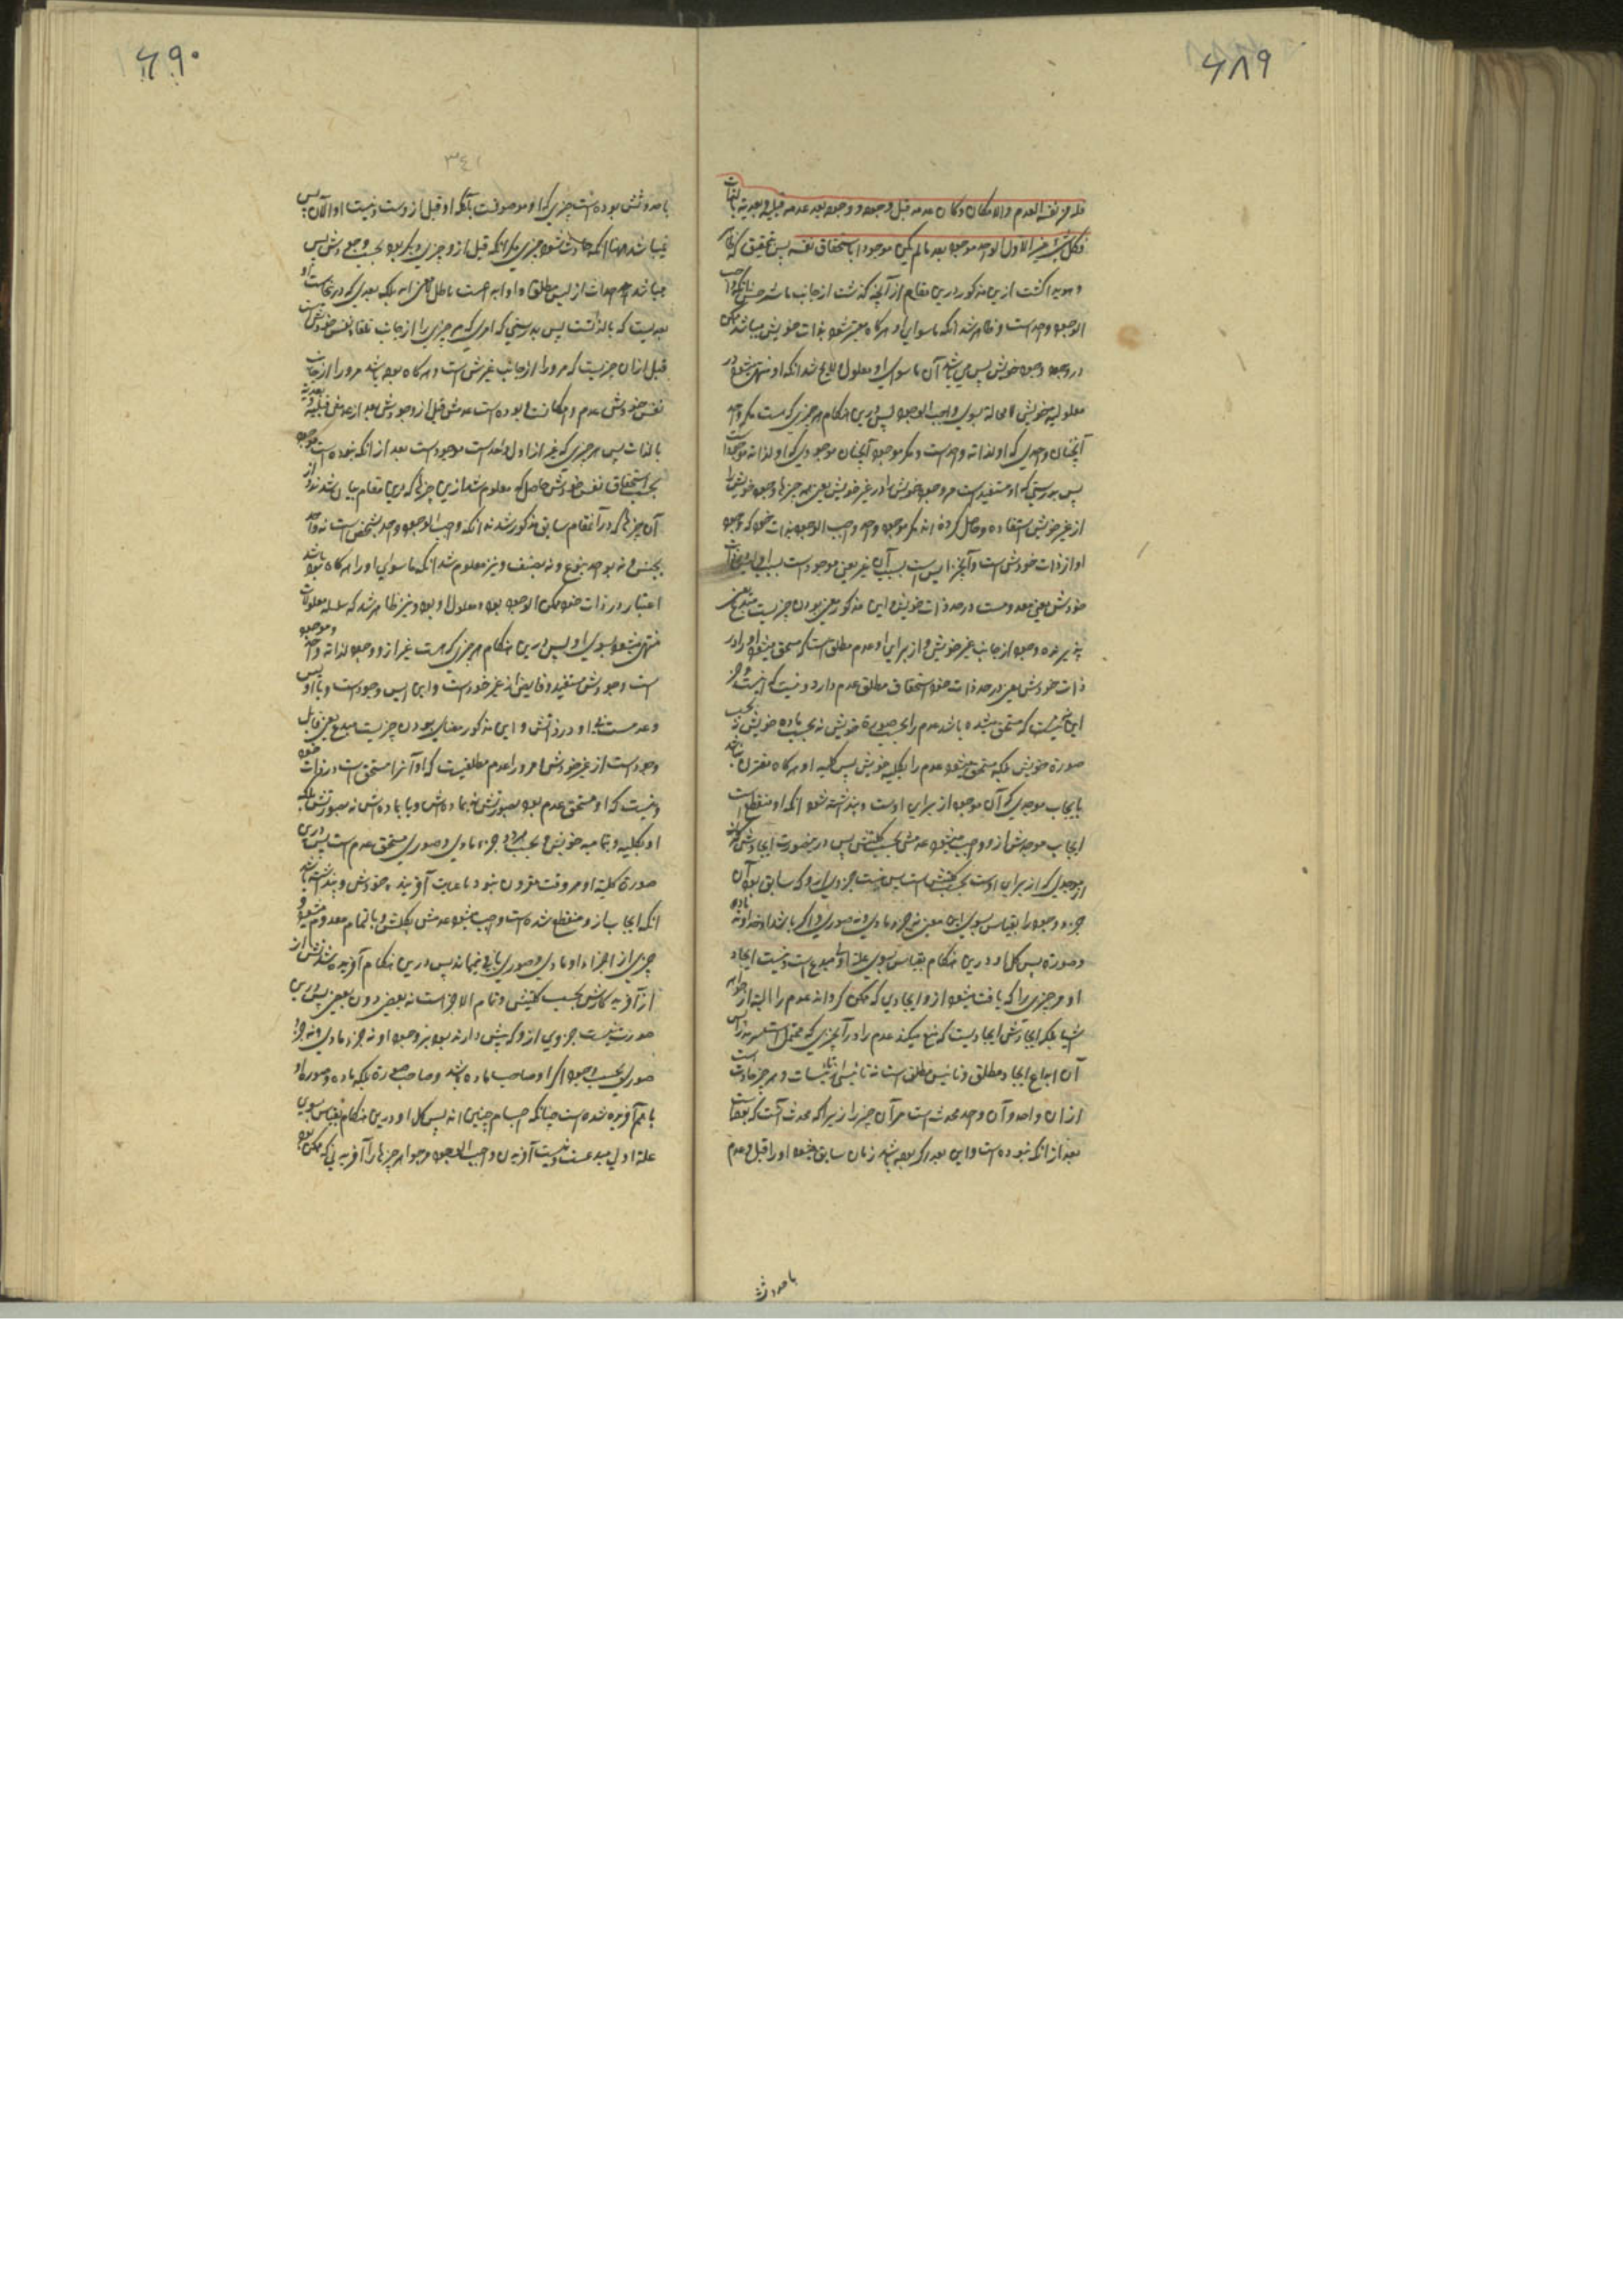 ۶۸۹
فله من نفسه العدم والامکان وکان عدمه قبل وجوده و وجوده بعد عدمه قبلیة وبعدیة بالذات
فکل شئ غیر الاول الواحد موجود بعد مالم یکن موجودا باستحقاق نفسه پس تحقیق که ظاهر
و هویدا گشت ازین مذکور درین مقام از آنچه گذشت از جانب ما شرحش آنکه واجب
الوجود واحد است و ظاهر شد آنکه ماسوای او هرگاه معتبر شود بذات خویش میباشد ممکن
در وجود خویش پس می باشد آن ماسوای او معلول و لایح شد آنکه او منتهی میشود در
معلولیة خویش لامحاله بسوی واجب الوجود پس درین هنگام هر چیزی که هست مگر واحد
آنچنان واحدی که او لذاته واحد است و مگر موجود آنچنان موجودی که او لذاته موجود است
پس بدرستی که او مستفید است مر وجود خویش را از غیر خویش یعنی همه چیزها وجود خویش را
از غیر خویش استفاده و حاصل کرده اند مگر موجود واحد واجب الوجود بذات خود که وجود
او از ذات خودش است و آنچیز ایس است بسبب آن غیر یعنی موجود است بسبب او و لیس است در ذات
خودش یعنی معدوم است در حد ذات خویش و این مذکور معنی بودن چیزیست مبدع یعنی
پذیرنده وجود از جانب غیر خویش و از برای او عدم مطلق است که مستحق میشود او را در
ذات خودش یعنی در حد ذات خود استحقاق مطلق عدم دارد و نیست که
این چنین نیست که مستحق میشده باشد عدم را بحسب صورة خویش نه بحسب ماده خویش نه بحسب
صورة خویش بلکه مستحق میشود عدم را بکلیه خویش پس کلیه او هرگاه مقترن نباشد
بایجاب موجدی که آن موجد از برای اوست و پنداشته شود آنکه او منقطع است
ایجاب موجدش ازو واجب میشود عدمش بحسب کلیتش پس درینصورت ایجادش
از موجدی که از برای اوست بحسب کلیتش است پس نیست جزوی ازو که سابق بود آن
جزو وجود را بقیاس بسوی این معنی نه جزو مادی و نه صوری و اگر باشد او خداوند ماده
و صورة پس کل او درین هنگام بقیاس بسوی علة اولی مبدع است و نیست ایجاد
او مر چیزی را که یافت میشود ازو ایجادی که ممکن گرداند عدم را البته از جواهر
اشیا بلکه ایجادش ایجادیست که منع میکند عدم را در آنچیزی که محتمل است سرمدیة را پس
آن ابداع ایجاد مطلق و تاییس مطلق است نه تاییس ما تاییسات و هر چیز حادث است
از آن واحد و آن واحد محدث است مر آن چیز را زیرا که محدث آنست که یافت
بعد از آنکه نبوده است و این بعد اگر بوده باشد زمان سابق میشود او را قبل و عدم
باحدوثش
۶۹۰
۳۴۱
باحدوثش بوده است چیزی که او موصوفست بآنکه او قبل ازوست و نیست او الآن پس
نمیباشد مهیا آنکه حادث شود چیزی مگر آنکه قبل ازو چیزی دیگر بود بحسب وجودش پس
میباشد احداث از لیس مطلق و او ابداع است باطل و بی معنی بلکه بعدی که درینجاست او
بعدیست که بالذاتست پس بدرستی که امری که مر چیزی را از جانب تلقاء نفس خودش است
قبل از آن چیزیست که مر او را از جانب غیرش است و هرگاه بوده باشد مر او را از جانب
نفس خودش عدم و امکان بوده است عدمش قبل از وجودش و وجودش بعد از عدمش قبلیة و بعدیة
بالذات پس هر چیزی که غیر از اول واحد است موجود است بعد از آنکه نبوده است موجود
بحسب استحقاق نفس خودش حاصل که معلوم شد ازین چیزها که درین مقام بیان شد و از
آن چیزها که در آنمقام سابق مذکور شدند آنکه واجب الوجود واحد بشخص است نه واحد
بجنس و نه بواحد بنوع و نه بصنف و نیز معلوم شد آنکه ماسوای او را هرگاه بوده باشد
اعتبار در ذات خود ممکن الوجود بود و معلول او بود و نیز ظاهر شد که سلسله معلولات
منتهی میشود بسوی او پس درین هنگام هر چیزی که هست غیر از وجود لذاته واحد و موجود
است وجودش مستفید و فایض از غیر خود است و این ایس وجود است و با او پس
و عدمست او در ذاتش و این مذکور معنای بودن چیزیست مبدع یعنی قابل
وجود است از غیر خودش و مر او را عدم مطلقیست که او آنرا مستحق است در ذات خود
و نیست که او مستحق عدم بود بصورتش نه بماده اش و یا بماده اش نه بصورتش بلکه
او بکلیه و بتمامیه خویش و بحسب هر دو جزء مادی و صوری مستحق عدم است پس درین
صورة کلیة او هر وقت مقرون نبود باعانت آفریننده خودش و پنداشته باشد
آنکه ایجاب ازو منقطع شده است واجب میشود عدمش بکلیتش و بالتمام معدوم میشود و
چیزی از اجزاء او مادی و صوری باقی نمی ماند پس درین هنگام آفریده شدنش از
از آفریدگارش بحسب کلیتش و تمام الاجزاست نه بعضی دون بعضی پس درین
صورت نیست جزوی ازو که پیش دارنده بود بر وجود او نه جزء مادی و نه جزء
صوری بحسب وجود اگر او صاحب ماده باشد و صاحب صورة بلکه ماده و صورة او
باهم آفریده شده است چنانکه اجسام چنین اند پس کل او درین هنگام بقیاس بسوی
علة اولی مبدعست و نیست آفریدن واجب الوجود مر جواهر چیزها را آفریدنی که ممکن بود